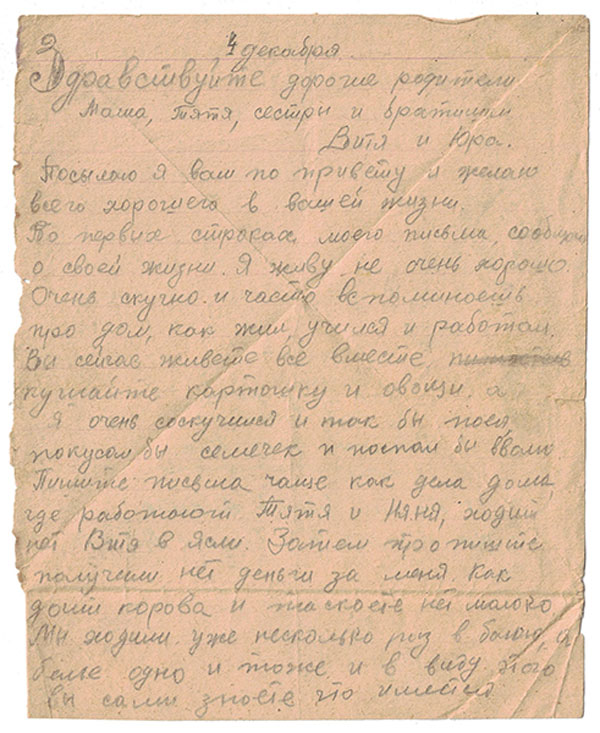 4 декабря
Здравствуйте дорогие родители
Мама, Тятя, сестры и братишки
Витя и Юра.
Посылаю я вам по привету и желаю
всего хорошего в вашей жизни.
Во первых строках моего письма, сообщаю
о своей жизни. Я живу не очень хорошо.
Очень скучно и часто вспоминаеть
про дом, как жил учился и работал.
Вы сейчас живете все вместе,
кушайте картошку и овощи, а
я очень соскучился и так бы поел,
покусал бы семечек и поспал бы вволю.
Пишите письма чаще как дела дома,
где работают Тятя и Няня, ходит
нет Витя в ясли. Затем пропишите
получили нет деньги за меня. Как
доит корова и таскаете нет молоко.
Мы ходили уже несколько раз в баню, а
белье одно и тоже и в виду этого
вы сами знаете что имеется